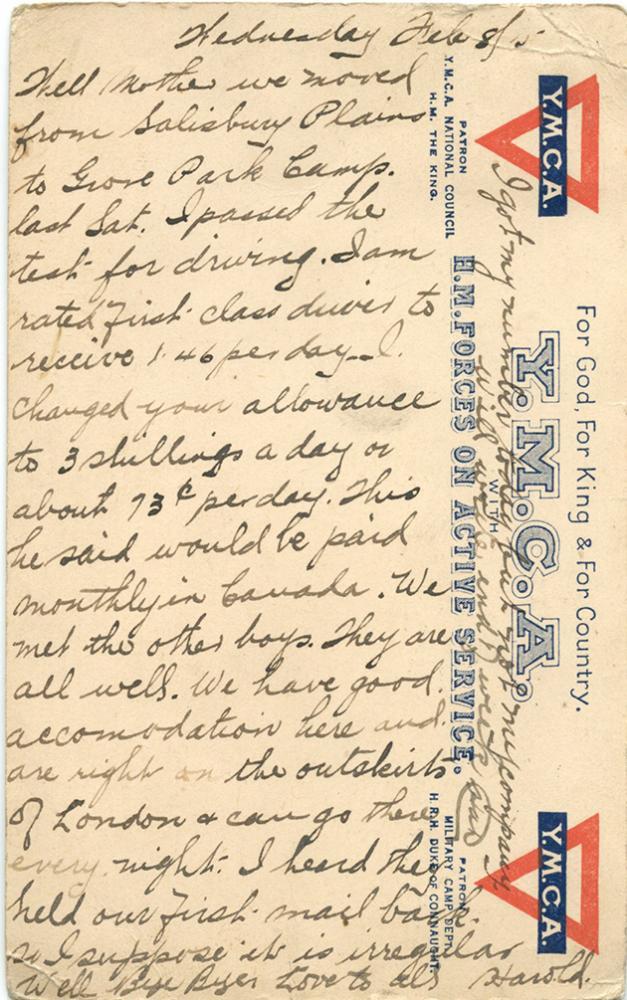 Wednesday Feb 8/15
Well Mother we moved
from Salisbury Plains
to Grove Park Camp.
last Sat. I passed the
test for driving. I am
rated first class driver to
receive 1.46 per day — I.
changed your allowance
to 3 shillings a day or
about 73¢ per day. This
he said would be paid
monthly in Canada. We
met the other boys. They are
all well. We have good
accomodation here and
are right on the outskirts
of London & can go there
every night. I heard they
held our first mail back.
so I suppose it is irregular
Well Bye Byes Love to all Harold.
I got my number today but not my company
will write end of week
For God, For King & For Country.
Y.M.C.A.
Y.M.C.A.
Y.M.C.A.
WITH
H.M. FORCES ON ACTIVE SERVICE.
PATRON
Y.M.C.A. NATIONAL COUNCIL
H.M. THE KING.
PATRON
MILITARY CAMP DEPT.
H.R.H. DUKE OF CONNAUGHT.